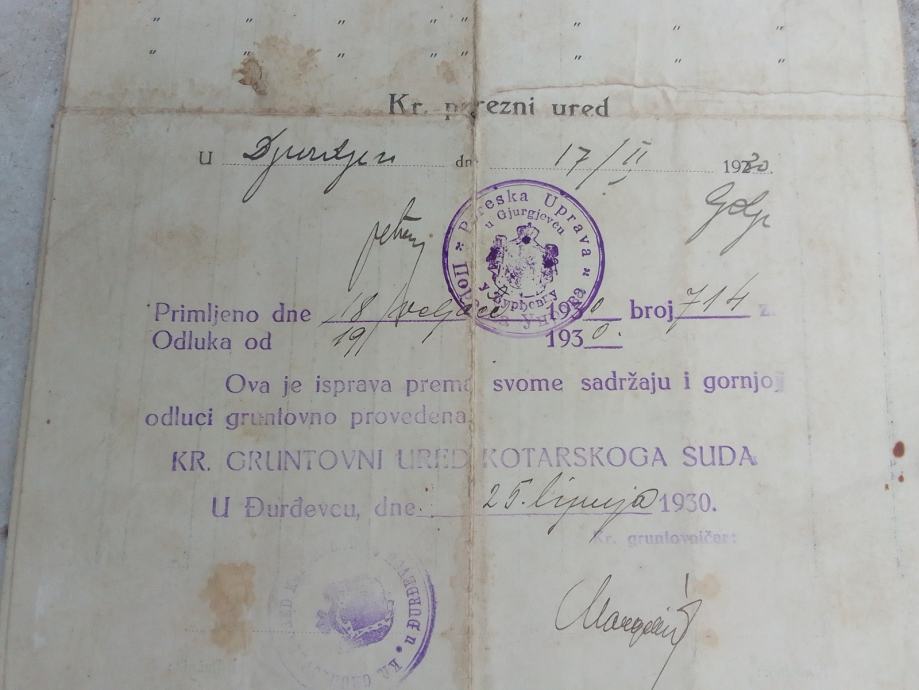 " " " " " " " "
" " " " " " " "
Kr. porezni ured
U Djurdjevcu dne 17/II 1930.
Poreska Uprava
u Gjurgjevcu
Primljeno dne 18/veljače 1930 broj 714 z.
Odluka od 19/ 1930.
Ova je isprava prema svome sadržaju i gornjoj
odluci gruntovno provedena.
KR. GRUNTOVNI URED KOTARSKOGA SUDA
U Đurđevcu, dne 25. lipnja 1930.
Kr. gruntovničar: